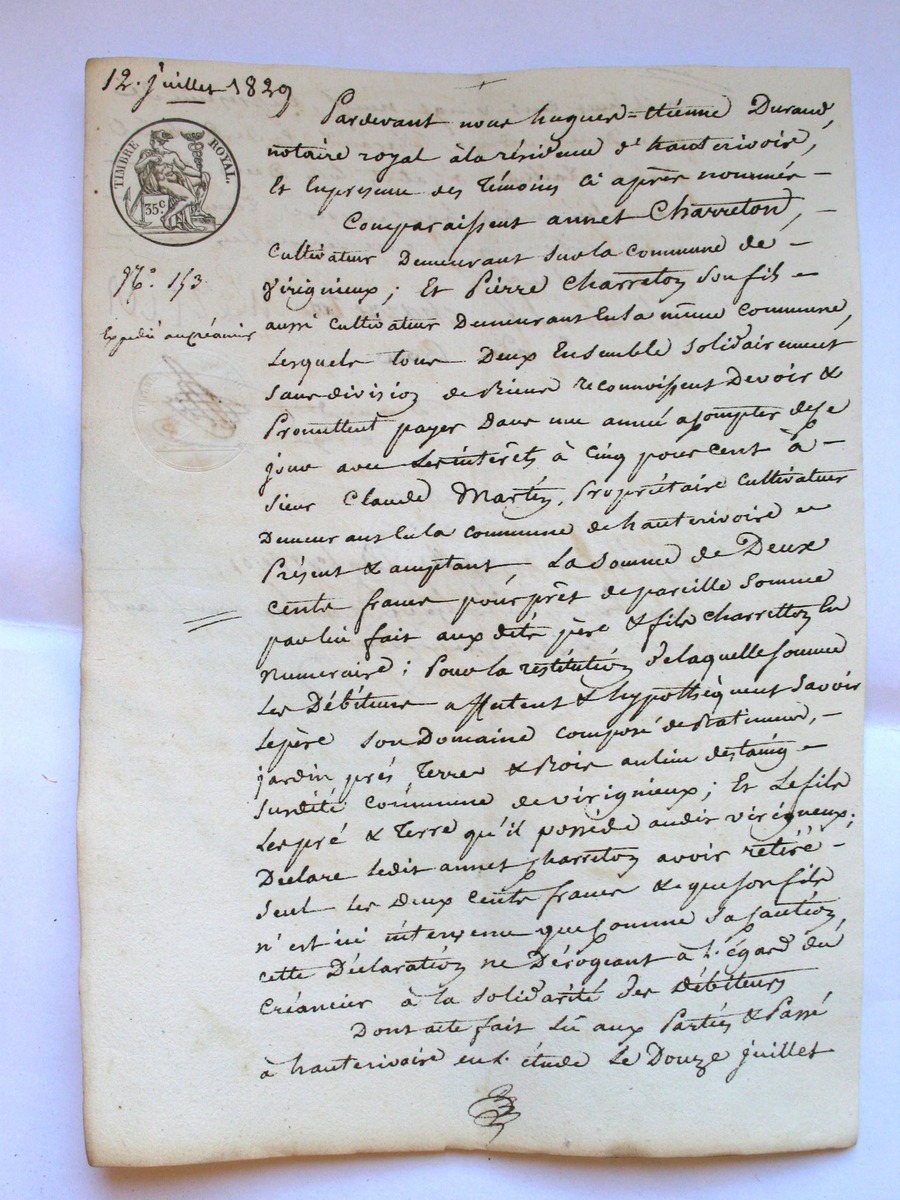 12. juillet 1829
TIMBRE ROYAL.
35 c
N.° 153
Expédié au créancier
Pardevant nous hugues=étienne Durand,
notaire royal à la résidence d'hauterivoire,
Et En présence des témoins ci après nommés –
Comparaissent annet Charreton, –
Cultivateur Demeurant sur la commune de –
virignieux ; Et Pierre Charreton son fils –
aussi Cultivateur Demeurant En la même commune,
Lesquels tous Deux Ensemble solidairement
sans division de Biens reconnoissent Devoir &
Promettent payer Dans une année a compter de ce
jour avec Les intérêts à Cinq pour cent à –
sieur Claude Martin, Propriétaire Cultivateur
Demeurant En la commune de hauterivoire –
Présent & acceptant La somme de Deux
cents francs pour prêt de pareille somme
par lui fait aux dits père & fils Charretton En
numéraire ; Pour la restitution de laquelle somme
Les Débiteurs affectent & hypothèquent savoir
Le père son Domaine composé de Batiments, –
jardin prés Terres & Bois au lieu
susdite commune de virignieux ; Et Le fils
Les pré & Terre qu'il possède audit virigneux ;
Déclare ledit annet Charreton avoir retiré –
seul les Deux cents francs & que son fils
n'est ici intervenu que comme sa caution,
cette Déclaration ne Dérogeant à L'égard du
Créancier à la solidarité des Débiteurs
Dont acte fait Lu aux Parties & Passé
à hauterivoire en l'étude Le Douze juillet